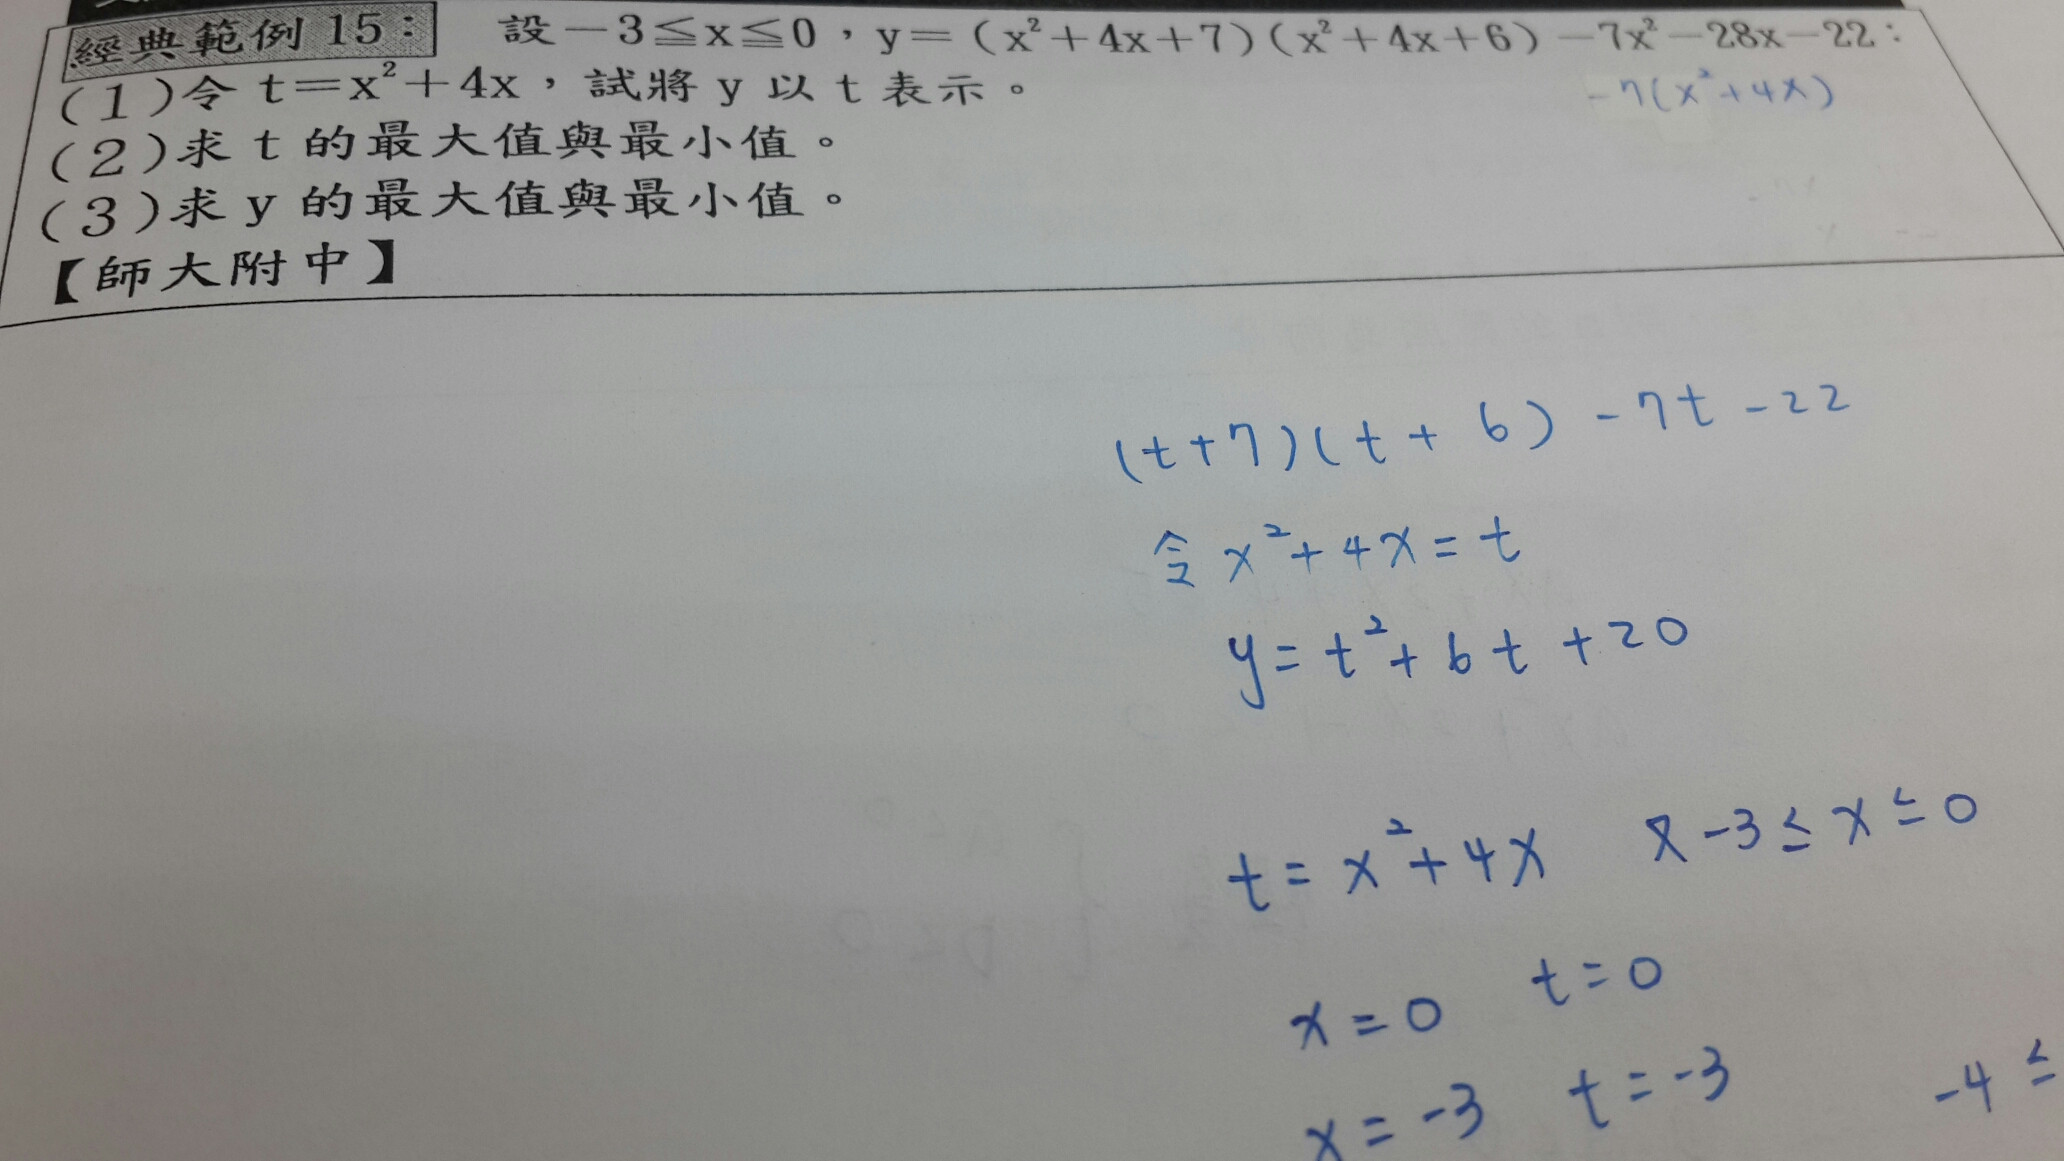 經典範例 15： 設－3≦x≦0，y＝(x²＋4x＋7)(x²＋4x＋6)－7x²－28x－22：
－7(x²+4x)
(1)令 t＝x²＋4x，試將 y 以 t 表示。
(2)求 t 的最大值與最小值。
(3)求 y 的最大值與最小值。
【師大附中】
(t+7)(t+6)-7t-22
令 x²+4x=t
y=t²+6t+20
t=x²+4x -3≤x≤0
x=0 t=0
x=-3 t=-3 -4≤